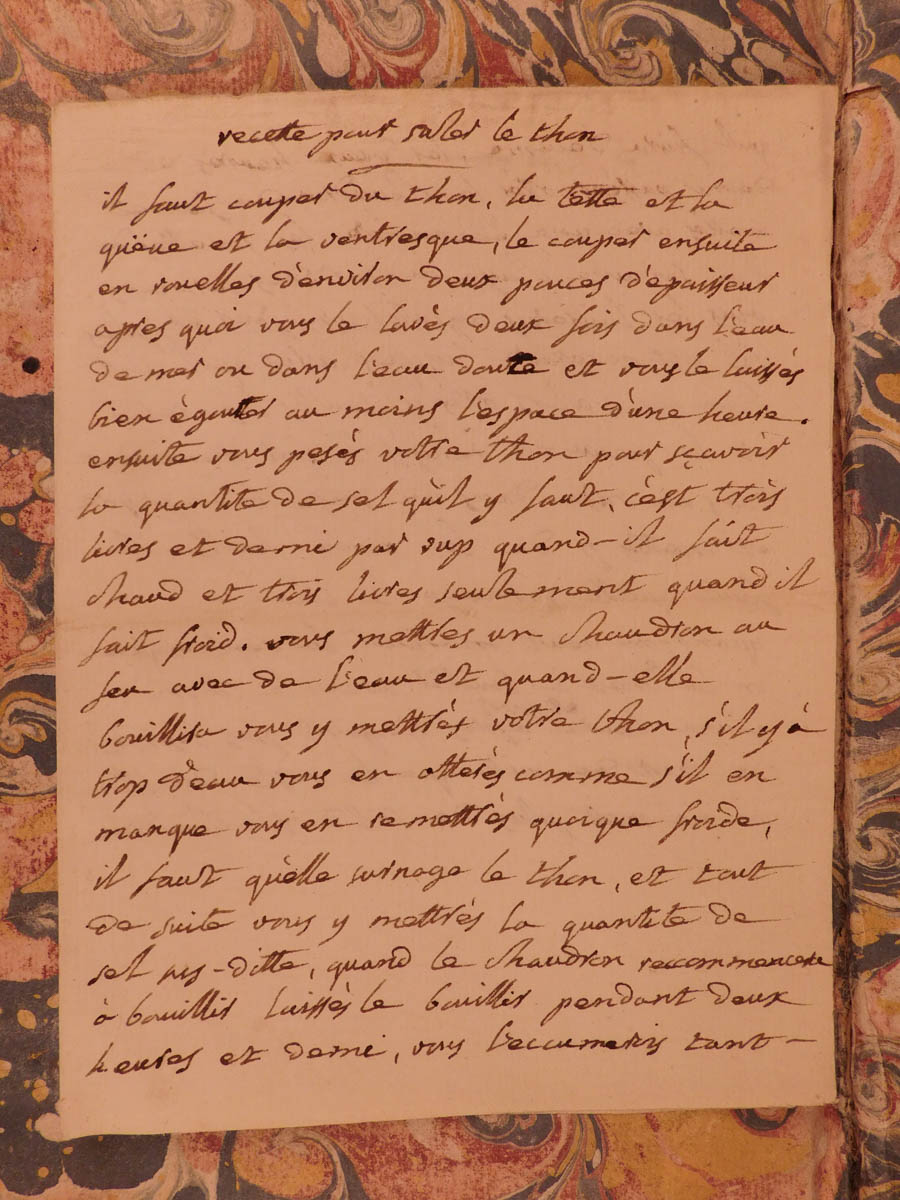 recette pour saler le thon
il faut couper du thon, la tette et la
quëue et la ventresque, le couper ensuite
en rouelles d'environ deux pouces d'epaisseur
apres quoi vous le lavès deux fois dans l'eau
de mer ou dans l'eau douce et vous le laissés
bien égouter au moins l'espace d'une heure.
ensuite vous pesés votre thon pour sçavoir
la quantite de sel qu'il y faut, c'est trois
livres et demi par rup quand-il fait
chaud et trois livres seulement quand il
fait froid. vous mettres un chaudron au
feu avec de l'eau et quand-elle
bouillira vous y mettrés votre thon, s'il y à
trop d'eau vous en otterés comme s'il en
manque vous en remettrés quoique froide,
il faut qu'elle surnage le thon, et tout
de suite vous y mettrés la quantite de
sel sus-ditte, quand le chaudron recommencera
à bouillir laissés le bouillir pendant deux
heures et demi, vous l'ecumeris tant-